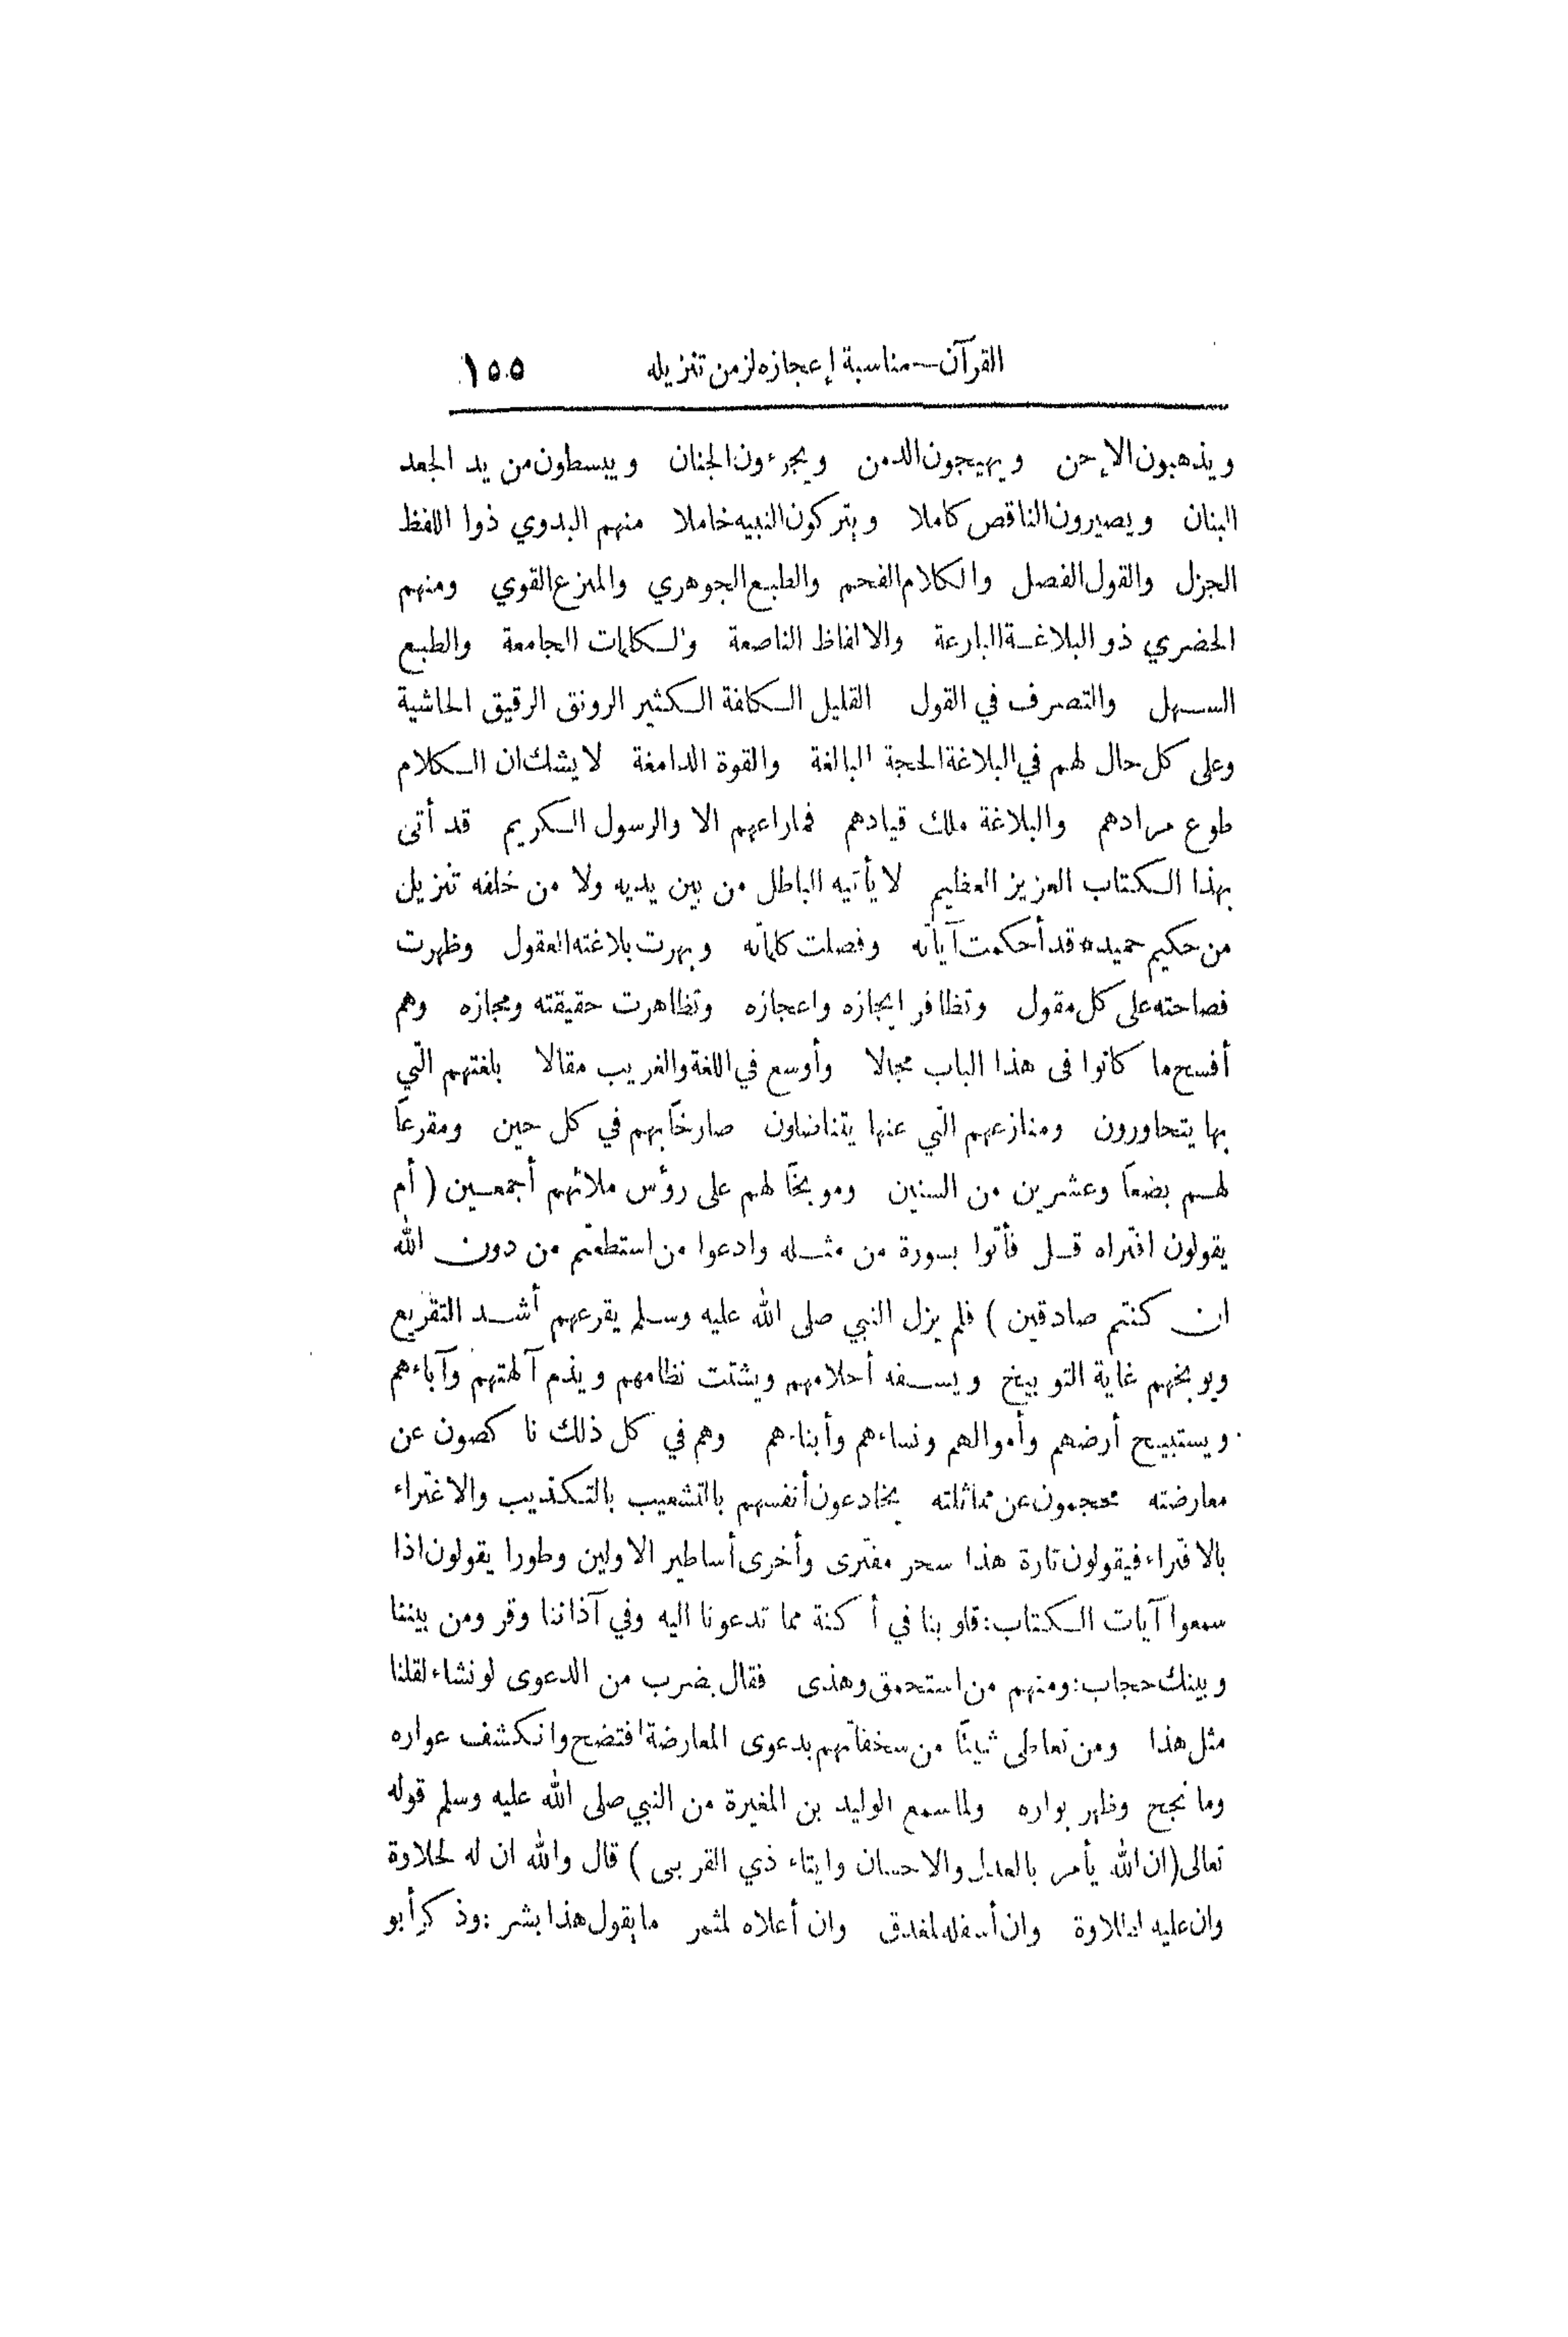 القرآن — مناسبة إعجازه لزمن تنزيله ١٥٥
ويذهبون الإحن ويهيجون الدمن ويجرءون الجنان ويبسطون من يد الجعد
البنان ويصيرون الناقص كاملا ويتركون النبيه خاملا منهم البدوي ذوا اللفظ
الجزل والقول الفصل والكلام الفحم والطبع الجوهري والمنزع القوي ومنهم
الحضري ذو البلاغة البارعة والالفاظ الناصعة والكلمات الجامعة والطبع
السهل والتصرف في القول القليل الكلفة الكثير الرونق الرقيق الحاشية
وعلى كل حال لهم في البلاغة الحجة البالغة والقوة الدامغة لا يشك ان الكلام
طوع مرادهم والبلاغة ملك قيادهم فما راعهم الا والرسول الكريم قد أتى
بهذا الكتاب العزيز العظيم لا يأتيه الباطل من بين يديه ولا من خلفه تنزيل
من حكيم حميد * قد أحكمت آياته وفصلت كلماته وبهرت بلاغته العقول وظهرت
فصاحته على كل مقول وتظافر ايجازه واعجازه وتظاهرت حقيقته ومجازه وهم
أفسح ما كانوا فى هذا الباب مجالا وأوسع في اللغة والغريب مقالا بلغتهم التي
بها يتحاورون ومنازعهم التي عنها يتناضلون صارخاً بهم في كل حين ومقرعاً
لهم بضعاً وعشرين من السنين وموبخاً لهم على رؤس ملائهم أجمعين ( أم
يقولون افتراه قل فأتوا بسورة من مثله وادعوا من استطعتم من دون الله
ان كنتم صادقين ) فلم يزل النبي صلى الله عليه وسلم يقرعهم أشد التقريع
ويوبخهم غاية التوبيخ ويسفه أحلامهم ويشتت نظامهم ويذم آلهتهم وآباءهم
ويستبيح أرضهم وأموالهم ونساءهم وأبناءهم وهم في كل ذلك ناكصون عن
معارضته محجمون عن مماثلته يخادعون أنفسهم بالتشعيب بالتكذيب والاغتراء
بالافتراء فيقولون تارة هذا سحر مفترى وأخرى أساطير الاولين وطورا يقولون اذا
سمعوا آيات الكتاب: قلوبنا في أكنة مما تدعونا اليه وفي آذاننا وقر ومن بيننا
وبينك حجاب: ومنهم من استحمق وهذى فقال بضرب من الدعوى لو نشاء لقلنا
مثل هذا ومن تعاطى شيئاً من سخفائهم بدعوى المعارضة افتضح وانكشف عواره
وما نجح وظهر بواره ولما سمع الوليد بن المغيرة من النبي صلى الله عليه وسلم قوله
تعالى ( ان الله يأمر بالعدل والاحسان وايتاء ذي القربى ) قال والله ان له لحلاوة
وان عليه لطلاوة وان أسفله لمغدق وان أعلاه لمثمر ما يقول هذا بشر : وذكر أبو